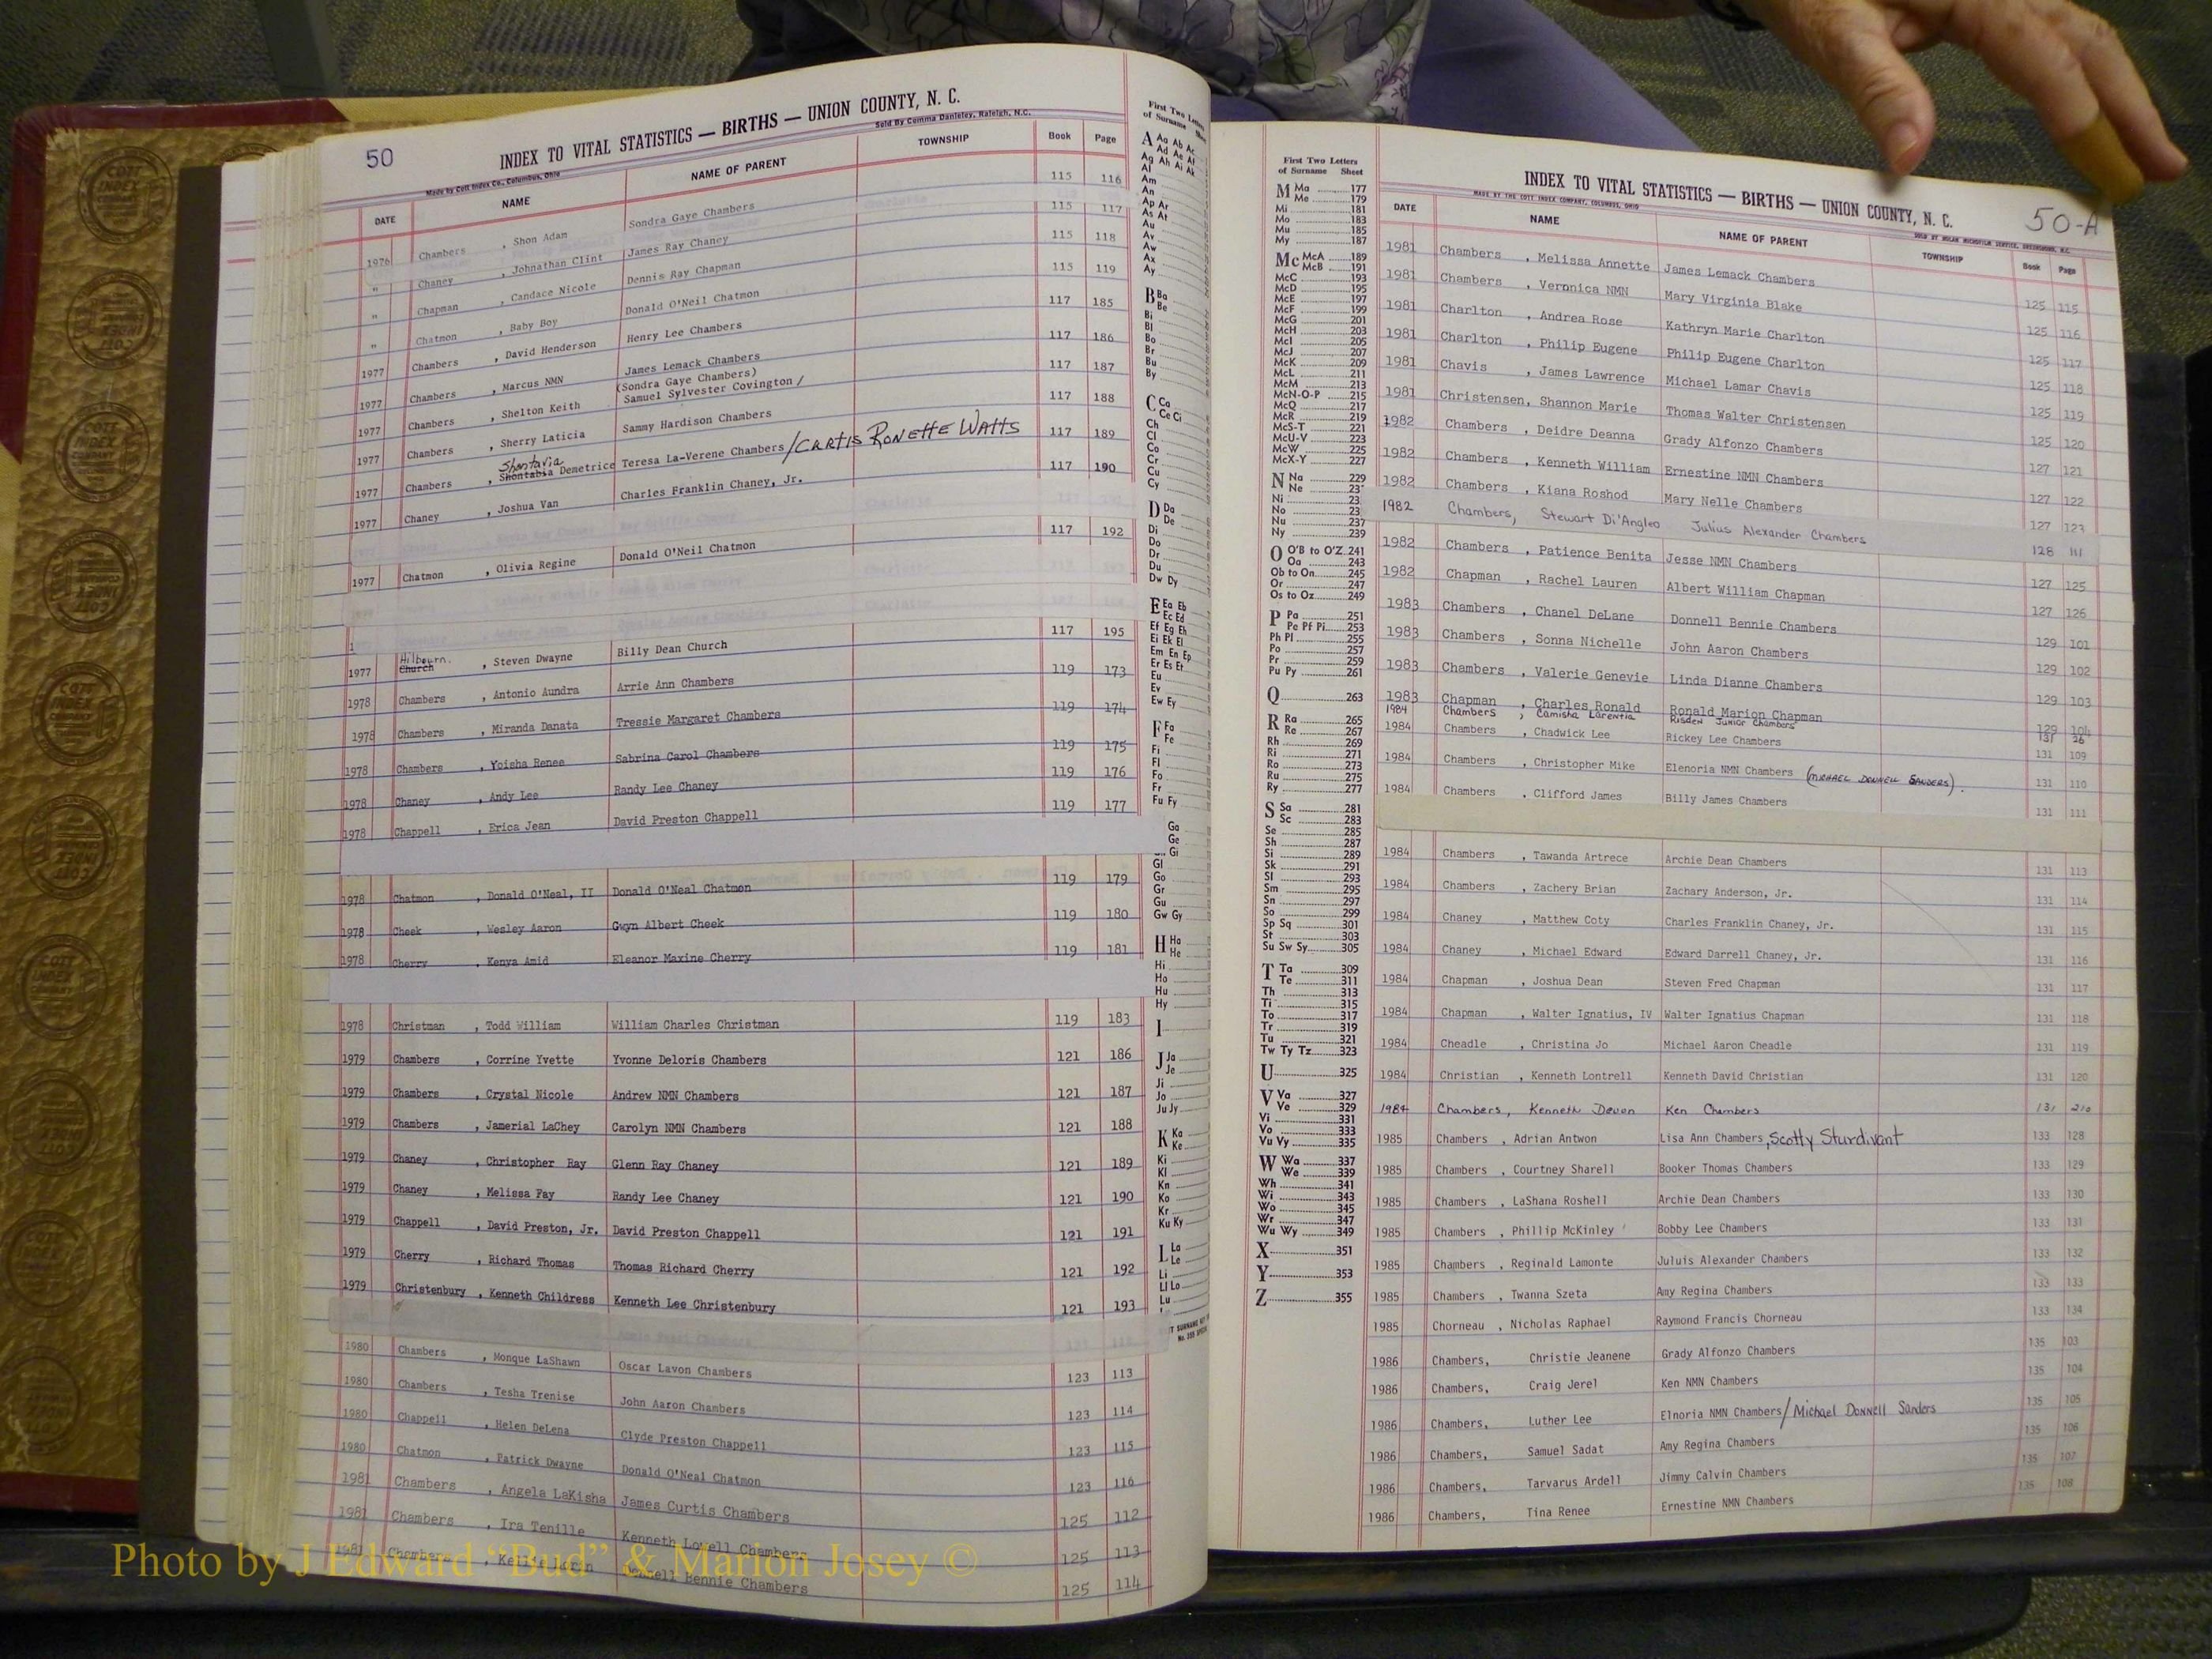 50
INDEX TO VITAL STATISTICS — BIRTHS — UNION COUNTY, N. C.
Made by Cott Index Co., Columbus, Ohio
Sold By Comma Danieley, Raleigh, N.C.
DATE NAME NAME OF PARENT TOWNSHIP Book Page
1976 Chambers , Shon Adam Sondra Gaye Chambers 115 116
" Chaney , Johnathan Clint James Ray Chaney 115 117
" Chapman , Candace Nicole Dennis Ray Chapman 115 118
" Chatmon , Baby Boy Donald O'Neil Chatmon 115 119
1977 Chambers , David Henderson Henry Lee Chambers 117 185
1977 Chambers , Marcus NMN James Lemack Chambers 117 186
1977 Chambers , Shelton Keith (Sondra Gaye Chambers) Samuel Sylvester Covington / 117 187
1977 Chambers , Sherry Laticia Sammy Hardison Chambers 117 188
1977 Chambers , Shontavia Shontabia Demetrice Teresa La-Verene Chambers /CURTIS RONETTE WATTS 117 189
1977 Chaney , Joshua Van Charles Franklin Chaney, Jr. 117 190
1977 Chatmon , Olivia Regine Donald O'Neil Chatmon 117 192
1977 Hilbourn. Church , Steven Dwayne Billy Dean Church 117 195
1978 Chambers , Antonio Aundra Arrie Ann Chambers 119 173
1978 Chambers , Miranda Danata Tressie Margaret Chambers 119 174
1978 Chambers , Yoisha Renee Sabrina Carol Chambers 119 175
1978 Chaney , Andy Lee Randy Lee Chaney 119 176
1978 Chappell , Erica Jean David Preston Chappell 119 177
1978 Chatmon , Donald O'Neal, II Donald O'Neal Chatmon 119 179
1978 Cheek , Wesley Aaron Gwyn Albert Cheek 119 180
1978 Cherry , Kenya Amid Eleanor Maxine Cherry 119 181
1978 Christman , Todd William William Charles Christman 119 183
1979 Chambers , Corrine Yvette Yvonne Deloris Chambers 121 186
1979 Chambers , Crystal Nicole Andrew NMN Chambers 121 187
1979 Chambers , Jamerial LaChey Carolyn NMN Chambers 121 188
1979 Chaney , Christopher Ray Glenn Ray Chaney 121 189
1979 Chaney , Melissa Fay Randy Lee Chaney 121 190
1979 Chappell , David Preston, Jr. David Preston Chappell 121 191
1979 Cherry , Richard Thomas Thomas Richard Cherry 121 192
1979 Christenbury , Kenneth Childress Kenneth Lee Christenbury 121 193
1980 Chambers , Monque LaShawn Oscar Lavon Chambers 123 113
1980 Chambers , Tesha Trenise John Aaron Chambers 123 114
1980 Chappell , Helen DeLena Clyde Preston Chappell 123 115
1980 Chatmon , Patrick Dwayne Donald O'Neal Chatmon 123 116
1981 Chambers , Angela LaKisha James Curtis Chambers 125 112
1981 Chambers , Ira Tenille Kenneth Lowell Chambers 125 113
1981 Chambers , Bennie Chambers 125 114
First Two Letters of Surname
A Aa Ab Ac
Ad Ae Af
Ag Ah Ai Ak
Al
Am
An
Ap Ar
As At
Au
Av
Aw
Ax
Ay
B Ba
Be
Bi
Bl
Bo
Br
Bu
By
C Ca
Ce Ci
Ch
Cl
Co
Cr
Cu
Cy
D Da
De
Di
Do
Dr
Du
Dw Dy
E Ea Eb
Ec Ed
Ef Eg Eh
Ei Ek El
Em En Ep
Er Es Et
Eu
Ev
Ew Ey
F Fa
Fe
Fi
Fl
Fo
Fr
Fu Fy
Ga
Ge
Gi
Gl
Go
Gr
Gu
Gw Gy
H Ha
He
Hi
Ho
Hu
Hy
I
J Ja
Je
Ji
Jo
Ju Jy
K Ka
Ke
Ki
Kl
Kn
Ko
Kr
Ku Ky
L La
Le
Li
Ll Lo
Lu
First Two Letters of Surname Sheet
M Ma 177
Me 179
Mi 181
Mo 183
Mu 185
My 187
Mc McA 189
McB 191
McC 193
McD 195
McE 197
McF 199
McG 201
McH 203
McI 205
McJ 207
McK 209
McL 211
McM 213
McN-O-P 215
McQ 217
McR 219
McS-T 221
McU-V 223
McW 225
McX-Y 227
N Na 229
Ne 23
Ni 23
No 23
Nu 237
Ny 239
O O'B to O'Z 241
Oa 243
Ob to On 245
Or 247
Os to Oz 249
P Pa 251
Pe Pf Pi 253
Ph Pl 255
Po 257
Pr 259
Pu Py 261
Q 263
R Ra 265
Re 267
Rh 269
Ri 271
Ro 273
Ru 275
Ry 277
S Sa 281
Sc 283
Se 285
Sh 287
Si 289
Sk 291
Sl 293
Sm 295
Sn 297
So 299
Sp Sq 301
St 303
Su Sw Sy 305
T Ta 309
Te 311
Th 313
Ti 315
To 317
Tr 319
Tu 321
Tw Ty Tz 323
U 325
V Va 327
Ve 329
Vi 331
Vo 333
Vu Vy 335
W Wa 337
We 339
Wh 341
Wi 343
Wo 345
Wr 347
Wu Wy 349
X 351
Y 353
Z 355
INDEX TO VITAL STATISTICS — BIRTHS — UNION COUNTY, N. C.
50-A
MADE BY THE COTT INDEX COMPANY, COLUMBUS, OHIO
DATE NAME NAME OF PARENT TOWNSHIP Book Page
1981 Chambers , Melissa Annette James Lemack Chambers 125 115
1981 Chambers , Veronica NMN Mary Virginia Blake 125 116
1981 Charlton , Andrea Rose Kathryn Marie Charlton 125 117
1981 Charlton , Philip Eugene Philip Eugene Charlton 125 118
1981 Chavis , James Lawrence Michael Lamar Chavis 125 119
1981 Christensen, Shannon Marie Thomas Walter Christensen 125 120
1982 Chambers , Deidre Deanna Grady Alfonzo Chambers 127 121
1982 Chambers , Kenneth William Ernestine NMN Chambers 127 122
1982 Chambers , Kiana Roshod Mary Nelle Chambers 127 123
1982 Chambers, Stewart Di'Angleo Julius Alexander Chambers 128 111
1982 Chambers , Patience Benita Jesse NMN Chambers 127 125
1982 Chapman , Rachel Lauren Albert William Chapman 127 126
1983 Chambers , Chanel DeLane Donnell Bennie Chambers 129 101
1983 Chambers , Sonna Nichelle John Aaron Chambers 129 102
1983 Chambers , Valerie Genevie Linda Dianne Chambers 129 103
1983 Chapman , Charles Ronald Ronald Marion Chapman 129 104
1984 Chambers , Camisha Larentia Risden Junior Chambers 131 26
1984 Chambers , Chadwick Lee Rickey Lee Chambers 131 109
1984 Chambers , Christopher Mike Elenoria NMN Chambers (MICHAEL DONNELL SANDERS). 131 110
1984 Chambers , Clifford James Billy James Chambers 131 111
1984 Chambers , Tawanda Artrece Archie Dean Chambers 131 113
1984 Chambers , Zachery Brian Zachary Anderson, Jr. 131 114
1984 Chaney , Matthew Coty Charles Franklin Chaney, Jr. 131 115
1984 Chaney , Michael Edward Edward Darrell Chaney, Jr. 131 116
1984 Chapman , Joshua Dean Steven Fred Chapman 131 117
1984 Chapman , Walter Ignatius, IV Walter Ignatius Chapman 131 118
1984 Cheadle , Christina Jo Michael Aaron Cheadle 131 119
1984 Christian , Kenneth Lontrell Kenneth David Christian 131 120
1984 Chambers, Kenneth Devon Ken Chambers 131 210
1985 Chambers , Adrian Antwon Lisa Ann Chambers, Scotty Sturdivant 133 128
1985 Chambers , Courtney Sharell Booker Thomas Chambers 133 129
1985 Chambers , LaShana Roshell Archie Dean Chambers 133 130
1985 Chambers , Phillip McKinley Bobby Lee Chambers 133 131
1985 Chambers , Reginald Lamonte Juluis Alexander Chambers 133 132
1985 Chambers , Twanna Szeta Amy Regina Chambers 133 133
1985 Chorneau , Nicholas Raphael Raymond Francis Chorneau 133 134
1986 Chambers, Christie Jeanene Grady Alfonzo Chambers 135 103
1986 Chambers, Craig Jerel Ken NMN Chambers 135 104
1986 Chambers, Luther Lee Elnoria NMN Chambers/Michael Donnell Sanders 135 105
1986 Chambers, Samuel Sadat Amy Regina Chambers 135 106
1986 Chambers, Tarvarus Ardell Jimmy Calvin Chambers 135 107
1986 Chambers, Tina Renee Ernestine NMN Chambers 135 108
Photo by J Edward “Bud” & Marion Josey ©